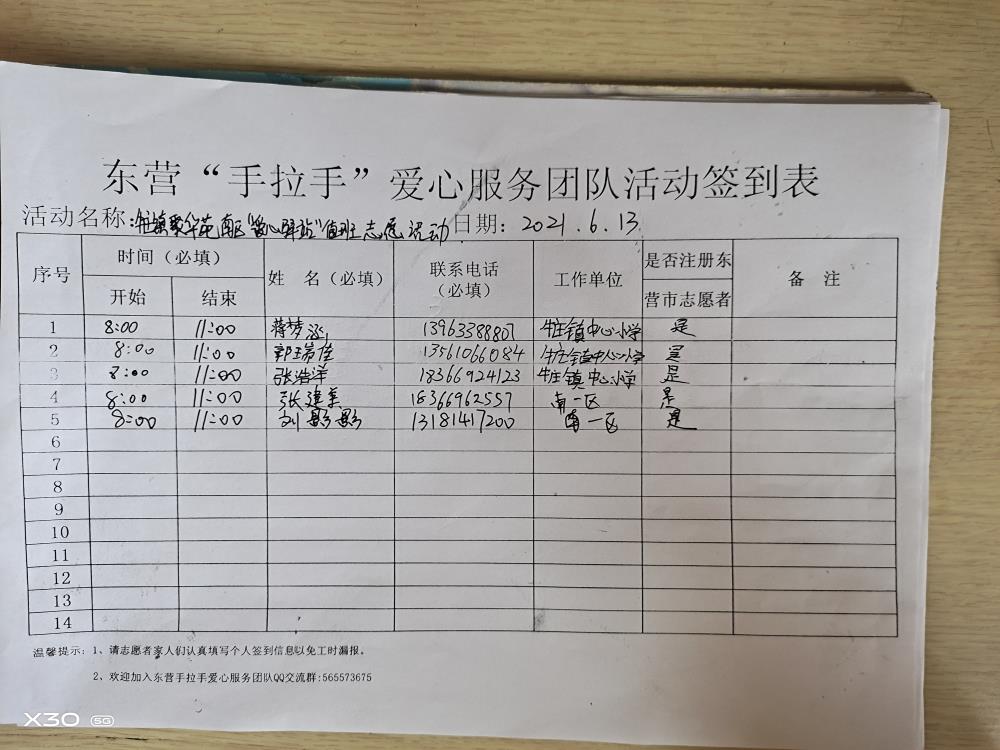 东营“手拉手”爱心服务团队活动签到表
活动名称:牛庄镇聚华苑南区"爱心驿站"值班志愿活动 日期: 2021.6.13
序号 时间（必填） 姓 名（必填） 联系电话（必填） 工作单位 是否注册东营市志愿者 备 注
开始 结束
1 8:00 11:00 蒋梦涵 13963388807 牛庄镇中心小学 是
2 8:00 11:00 郭珏岩佳 13561066084 牛庄镇中心小学 是
3 8:00 11:00 张浩洋 18366924123 牛庄镇中心小学 是
4 8:00 11:00 张建美 18366962557 南一区 是
5 8:00 11:00 刘影影 13181417200 南一区 是
6
7
8
9
10
11
12
13
14
温馨提示: 1、请志愿者家人们认真填写个人签到信息以免工时漏报。
2、欢迎加入东营手拉手爱心服务团队QQ交流群:565573675
X30 5G